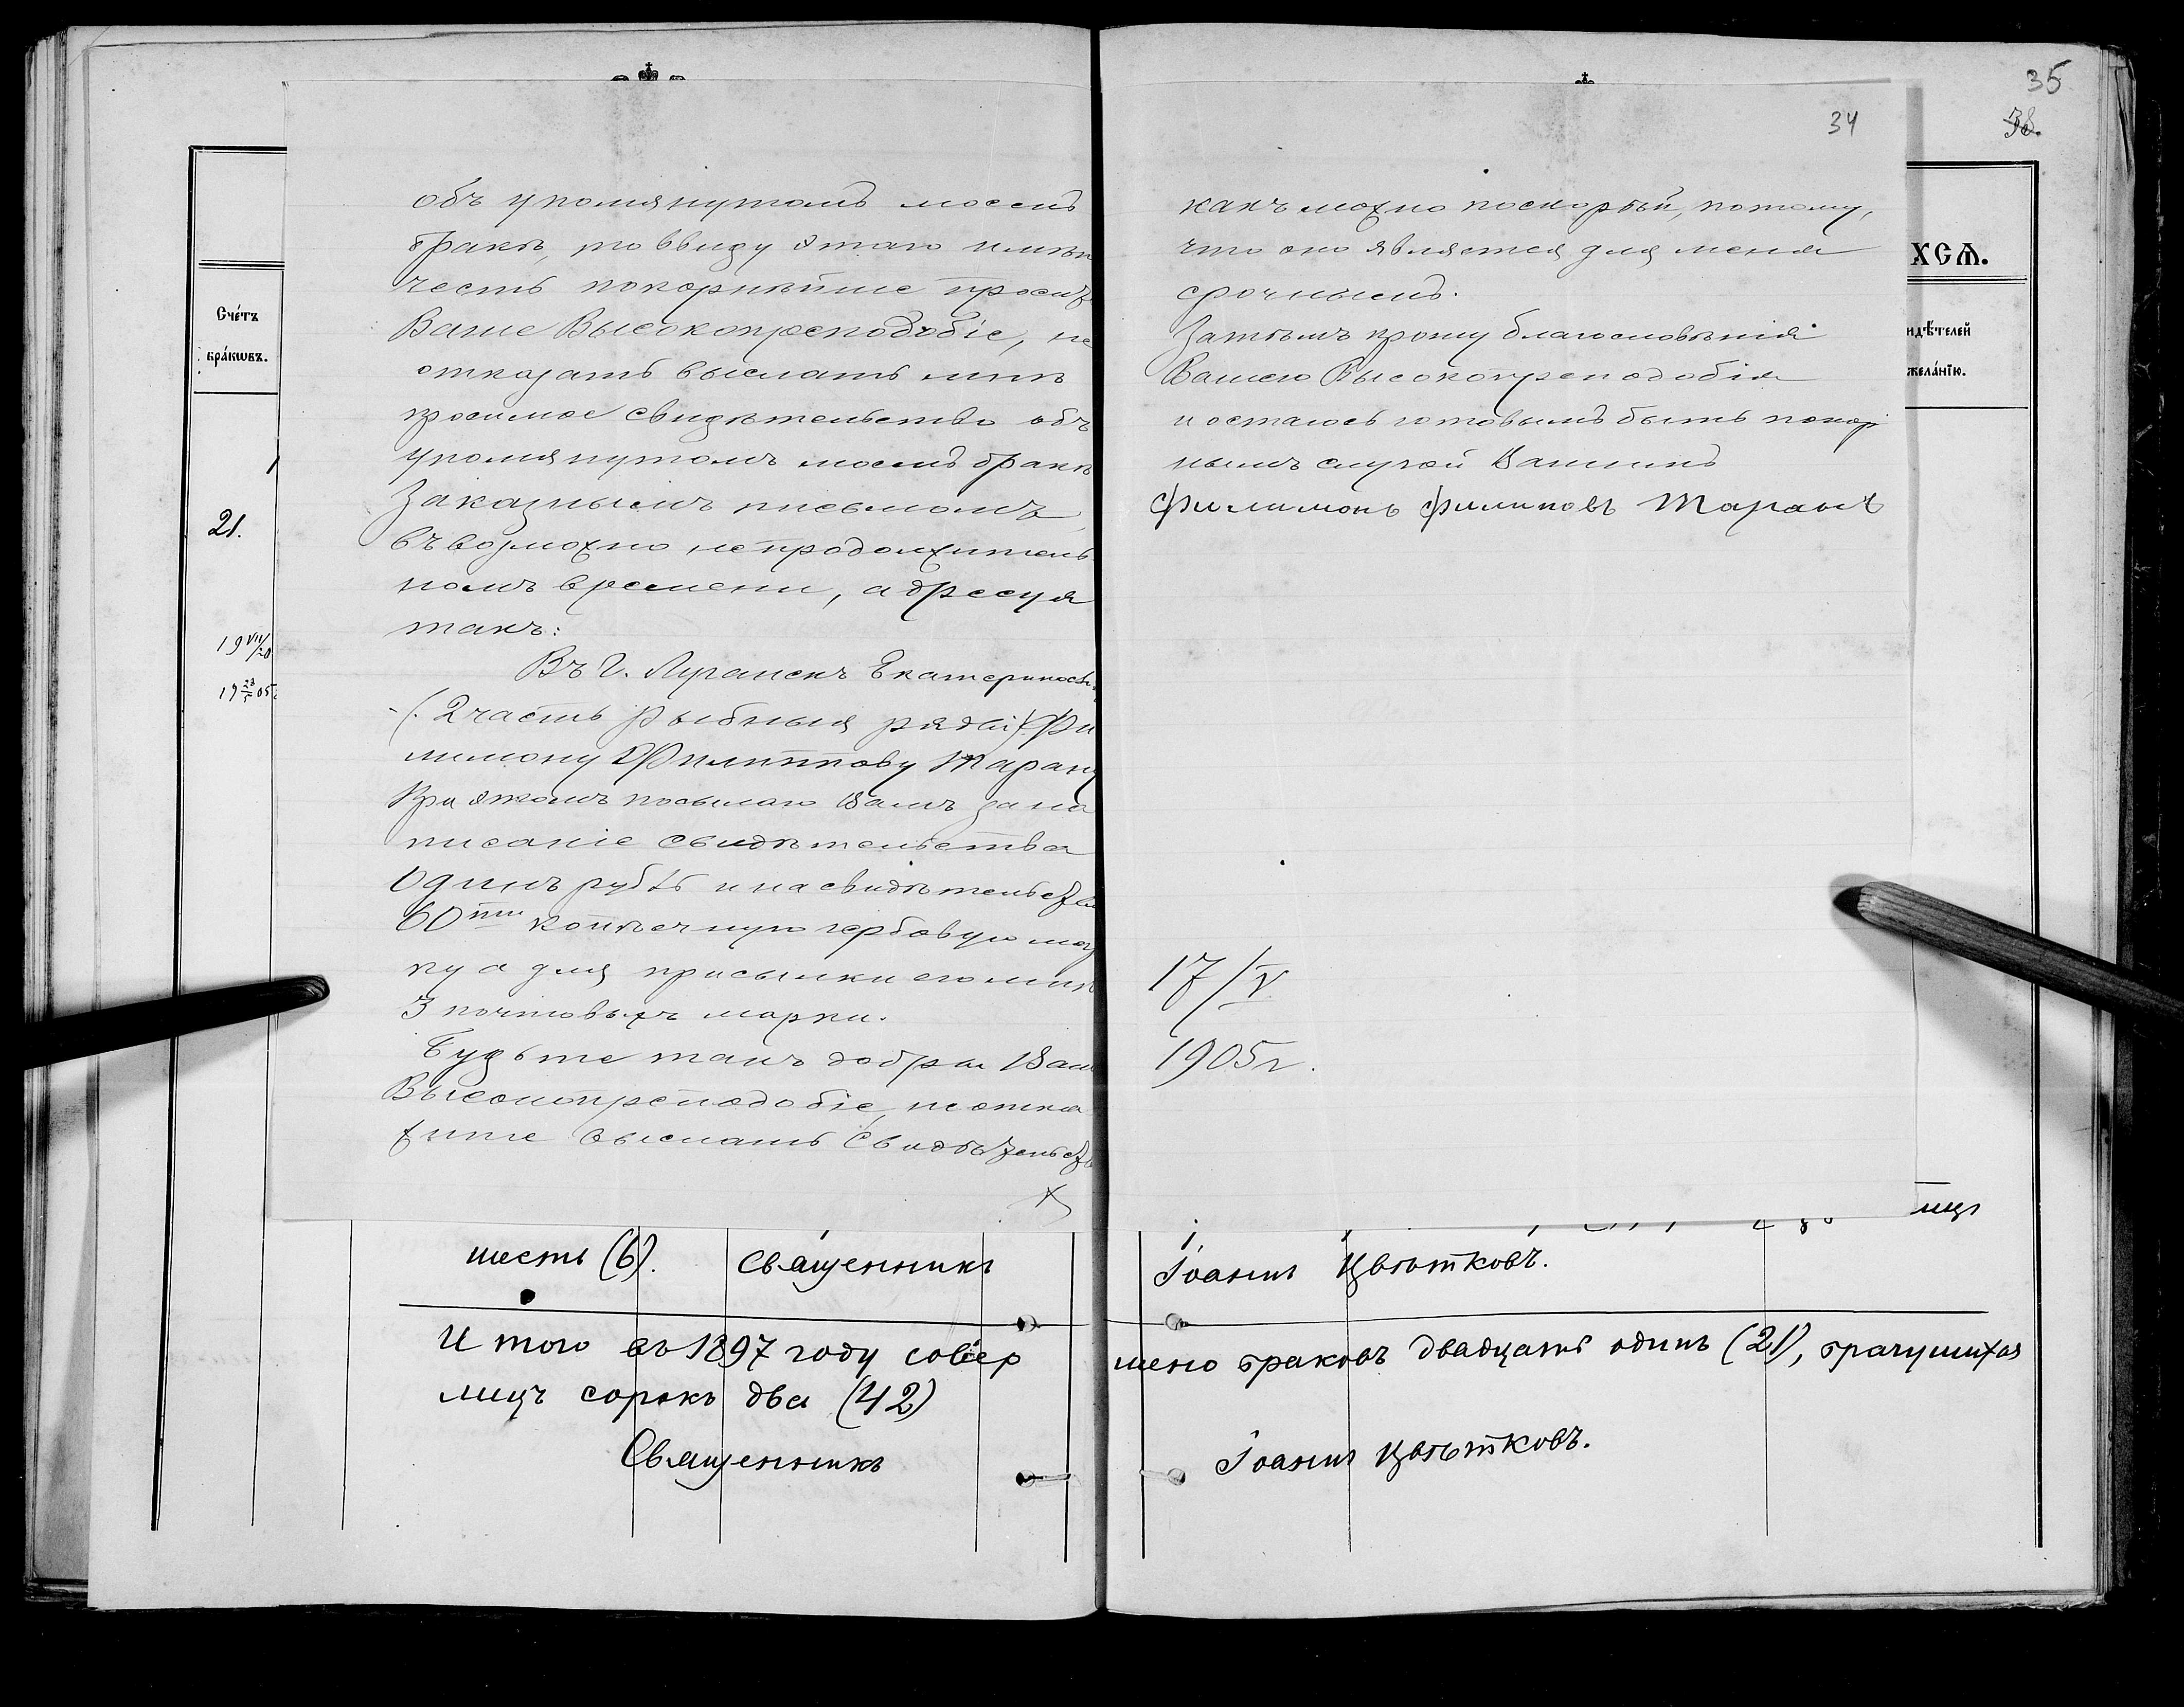 35
34
38.
объ упомянутомъ моемъ
бракѣ, то ввиду этаго имѣю
честь покорнѣйше просить
Ваше Высокопреподобіе, не
отказать выслать мнѣ
просимое свидѣтельство объ
упомянутомъ моемъ бракѣ
Заказнымъ письмомъ
въ возможно непродолжитель
номъ времени, адресуя
такъ:
Въ г. Луганскъ Екатеринос
(2 часть рыбныя ряды) Фи
лимону Филиппову Тарану
При этомъ посылаю Вамъ за на
писаніе свидѣтельства
Одинъ рубль и на свидѣтельство
60ти копѣечную гербовую мар
ку а для присылки его мнѣ
3 почтовыхъ марки.
Будьте такъ добры Ваше
Высокопреподобіе, не отка
жите выслать Свидѣтельство
какъ можно поскорѣй, потому,
что оно является для меня
срочнымъ.
Затѣмъ прошу благословѣнія
Вашего Высокопреподобія
и остаюсь готовымъ быть покор
нымъ слугой Вашимъ
Филимонъ Филиповъ Таранъ
17/V
1905 г.
Сче́тъ
бра́кѡвъ.
21.
19 VII/20
19 23/5 05
ХСѦ.
идѣ́телей
жела́нїю.
лицъ
шесть (6). Священникъ Іоаннъ Цвѣтковъ.
Итого въ 1897 году совер шено браковъ двадцать одинъ (21), брачушихся
лицъ сорокъ два (42)
Священникъ Іоаннъ Цвѣтковъ.